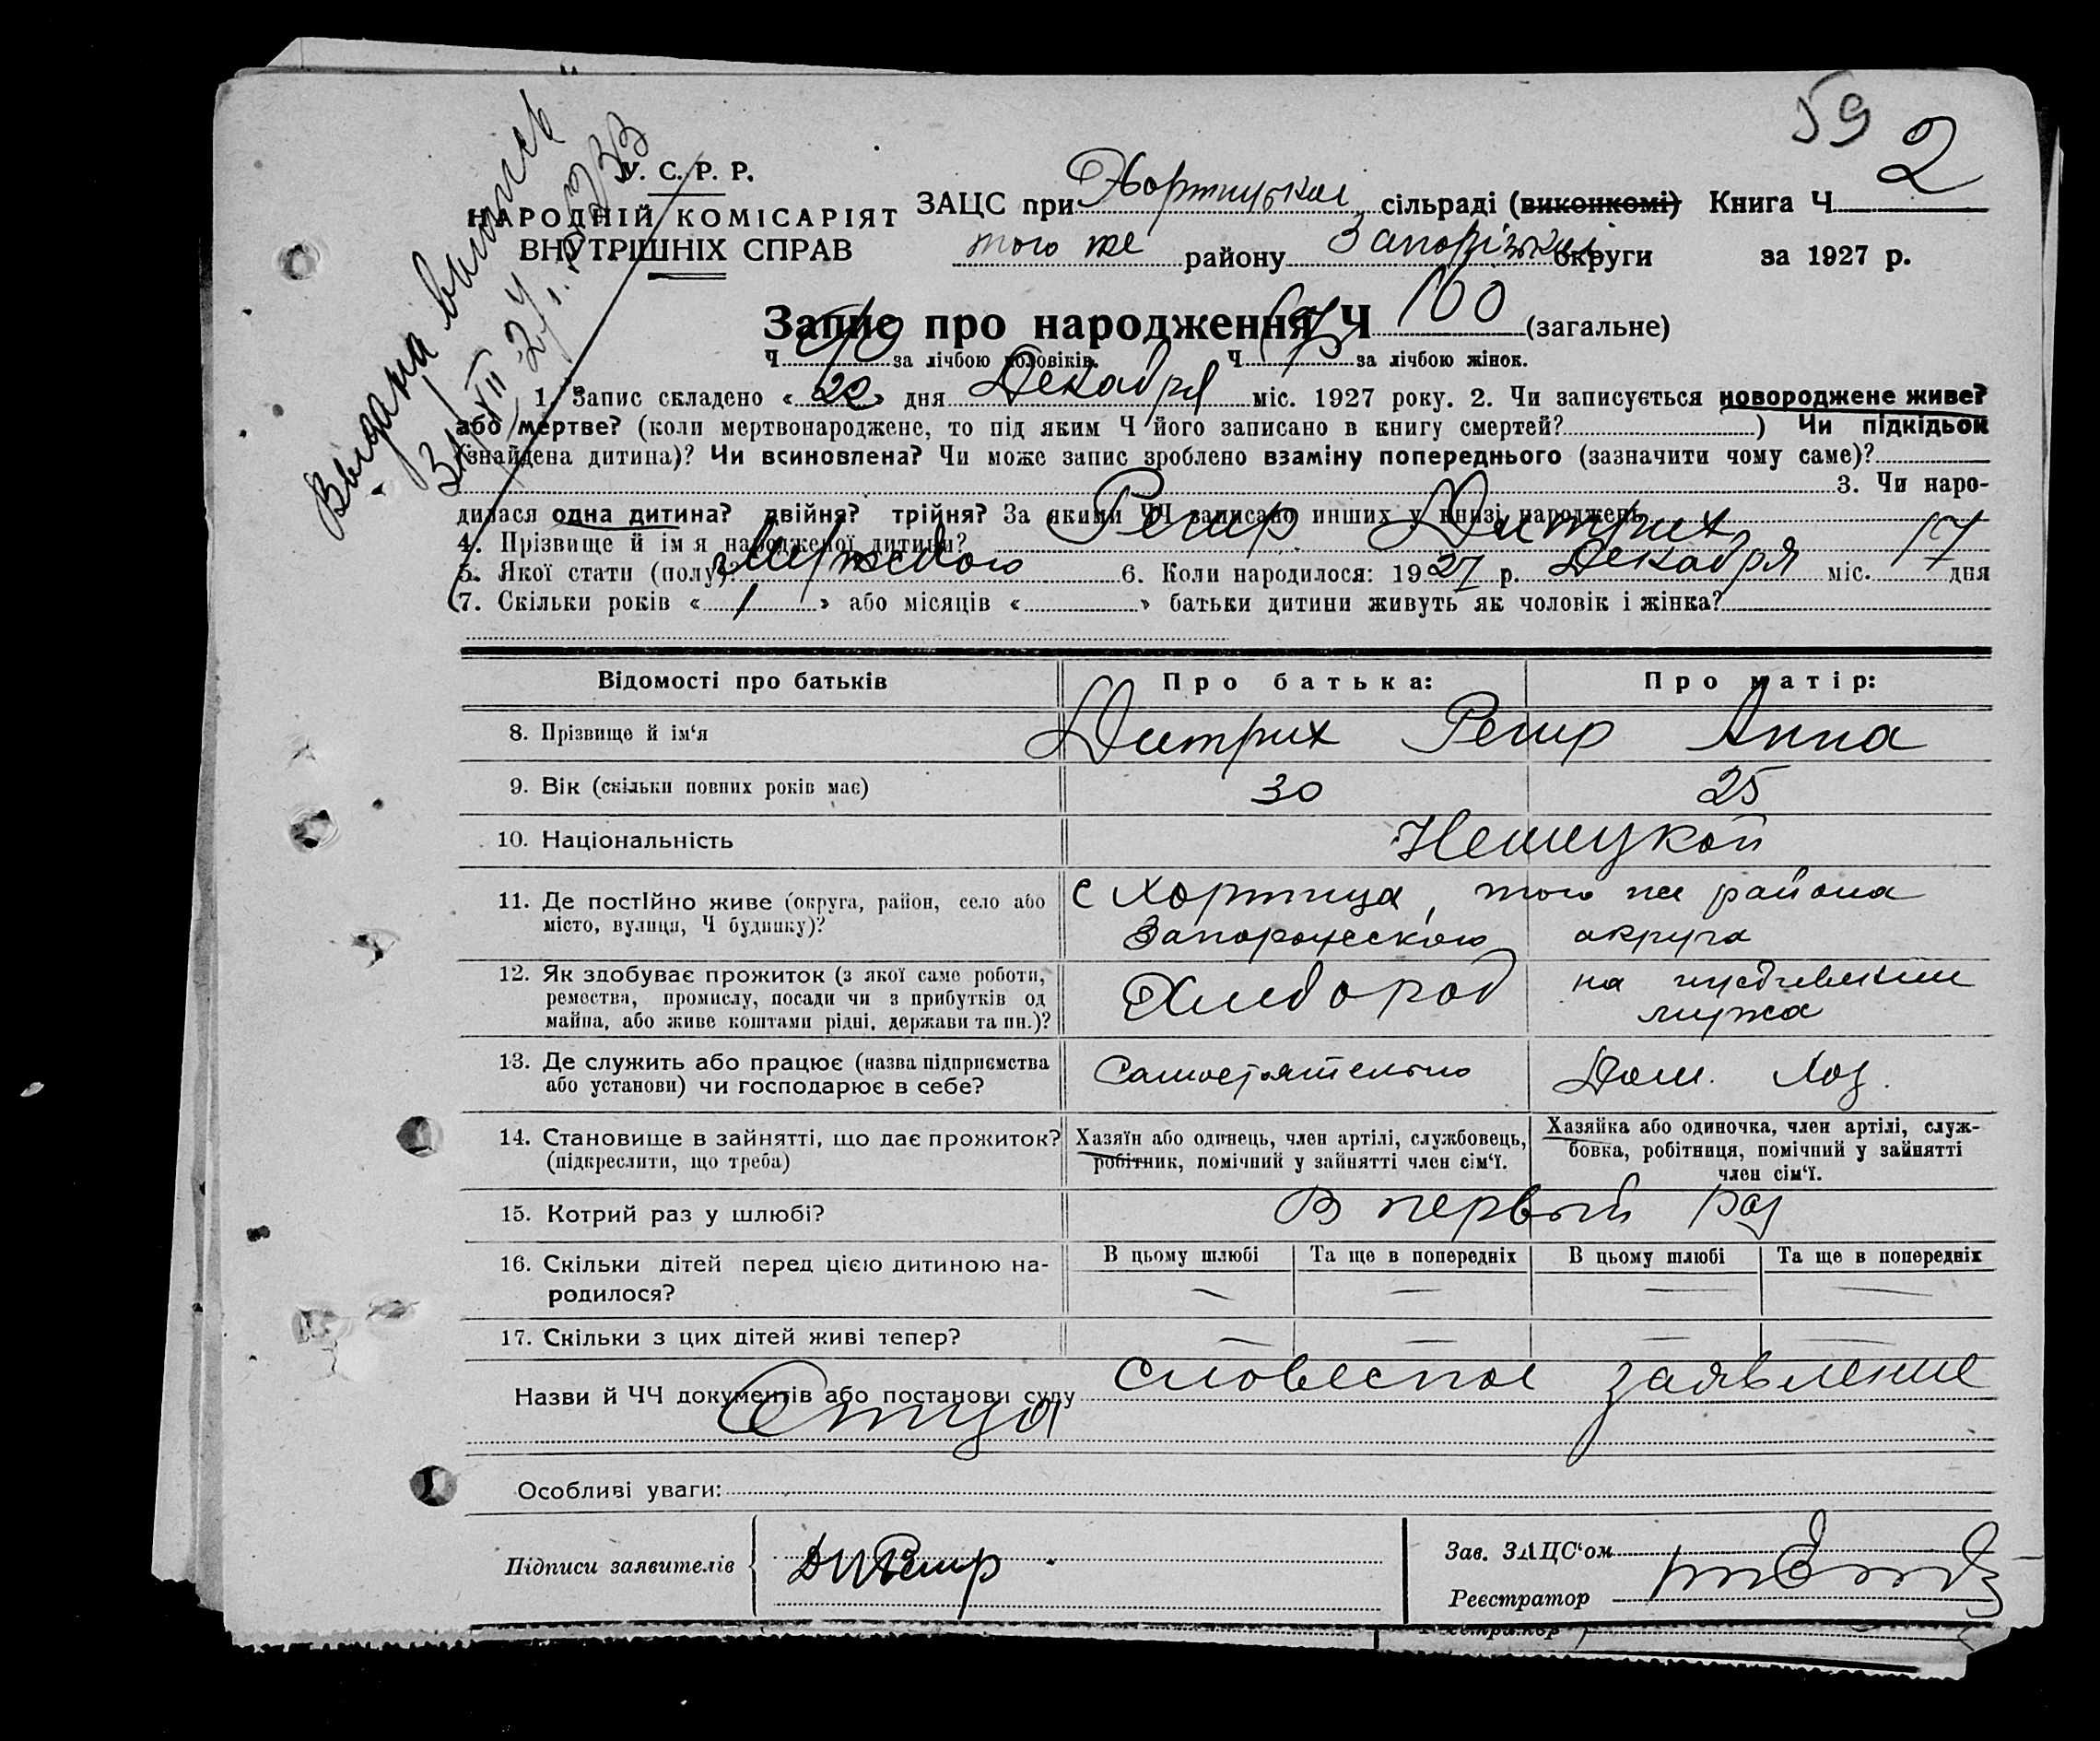 59
2
Выдана выпись
У. С. Р. Р.
НАРОДНІЙ КОМІСАРІЯТ
ВНУТРІШНІХ СПРАВ
ЗАЦС при Хортицькой сільраді (виконкомі) Книга Ч
того же району Запорізької округи за 1927 р.
Запис про народження Ч 100 (загальне)
Ч за лічбою чоловіків. Ч за лічбою жінок.
1. Запис складено « 22 » дня Декабря міс. 1927 року. 2. Чи записується новороджене живе?
або мертве? (коли мертвонароджене, то під яким Ч його записано в книгу смертей?) Чи підкідьок
(знайдена дитина)? Чи всиновлена? Чи може запис зроблено взаміну попереднього (зазначити чому саме)?
3. Чи наро-
дилася одна дитина? двійня? трійня? За якими ЧЧ записано инших у книзі народжень
4. Прізвище й імя народженої дитини? Ремр Дитрих
5. Якої стати (полу)? Мужского 6. Коли народилося: 1927 р. Декабря міс. 17 дня
7. Скільки років « 1 » або місяців « » батьки дитини живуть як чоловік і жінка?
Відомості про батьків Про батька: Про матір:
8. Прізвище й ім‘я Дитрих Ремр Анна
9. Вік (скільки повних років має) 30 25
10. Національність Немецкой
11. Де постійно живе (округа, район, село або с Хортица, того же района
місто, вулиця, Ч будинку)? Запорожского округа
12. Як здобуває прожиток (з якої саме роботи, Хлебороб на
ремества, промислу, посади чи з прибутків од мужа
майна, або живе коштами рідні, держави та ин.)?
13. Де служить або працює (назва підприємства Самостоятельно Дом. Хоз.
або установи) чи господарює в себе?
14. Становище в зайнятті, що дає прожиток? Хазяїн або одинець, член артілі, службовець, Хазяйка або одиночка, член артілі, служ-
(підкреслити, що треба) робітник, помічний у зайнятті член сім‘ї. бовка, робітниця, помічний у зайнятті
член сім‘ї.
15. Котрий раз у шлюбі? В первый раз
16. Скільки дітей перед цією дитиною на- В цьому шлюбі Та ще в попередніх В цьому шлюбі Та ще в попередніх
родилося? — — — —
17. Скільки з цих дітей живі тепер? — — — —
Назви й ЧЧ документів або постанови суду словесное заявление
Отца
Особливі уваги:
Підписи заявителів
Зав. ЗАЦС‘ом
Реєстратор